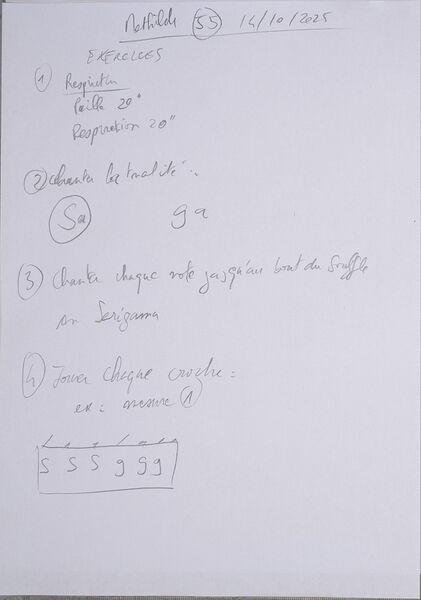 Mathilde 55 14/10/2025
EXERCICES
1 Respiration
Paille 20"
Respiration 20"
2 Chanter la tonalité :
Sa ga
3 Chanter chaque note jusqu'au bout du souffle
en Serigama
4 Jouer chaque croche :
ex : mesure 1
S S S g g g